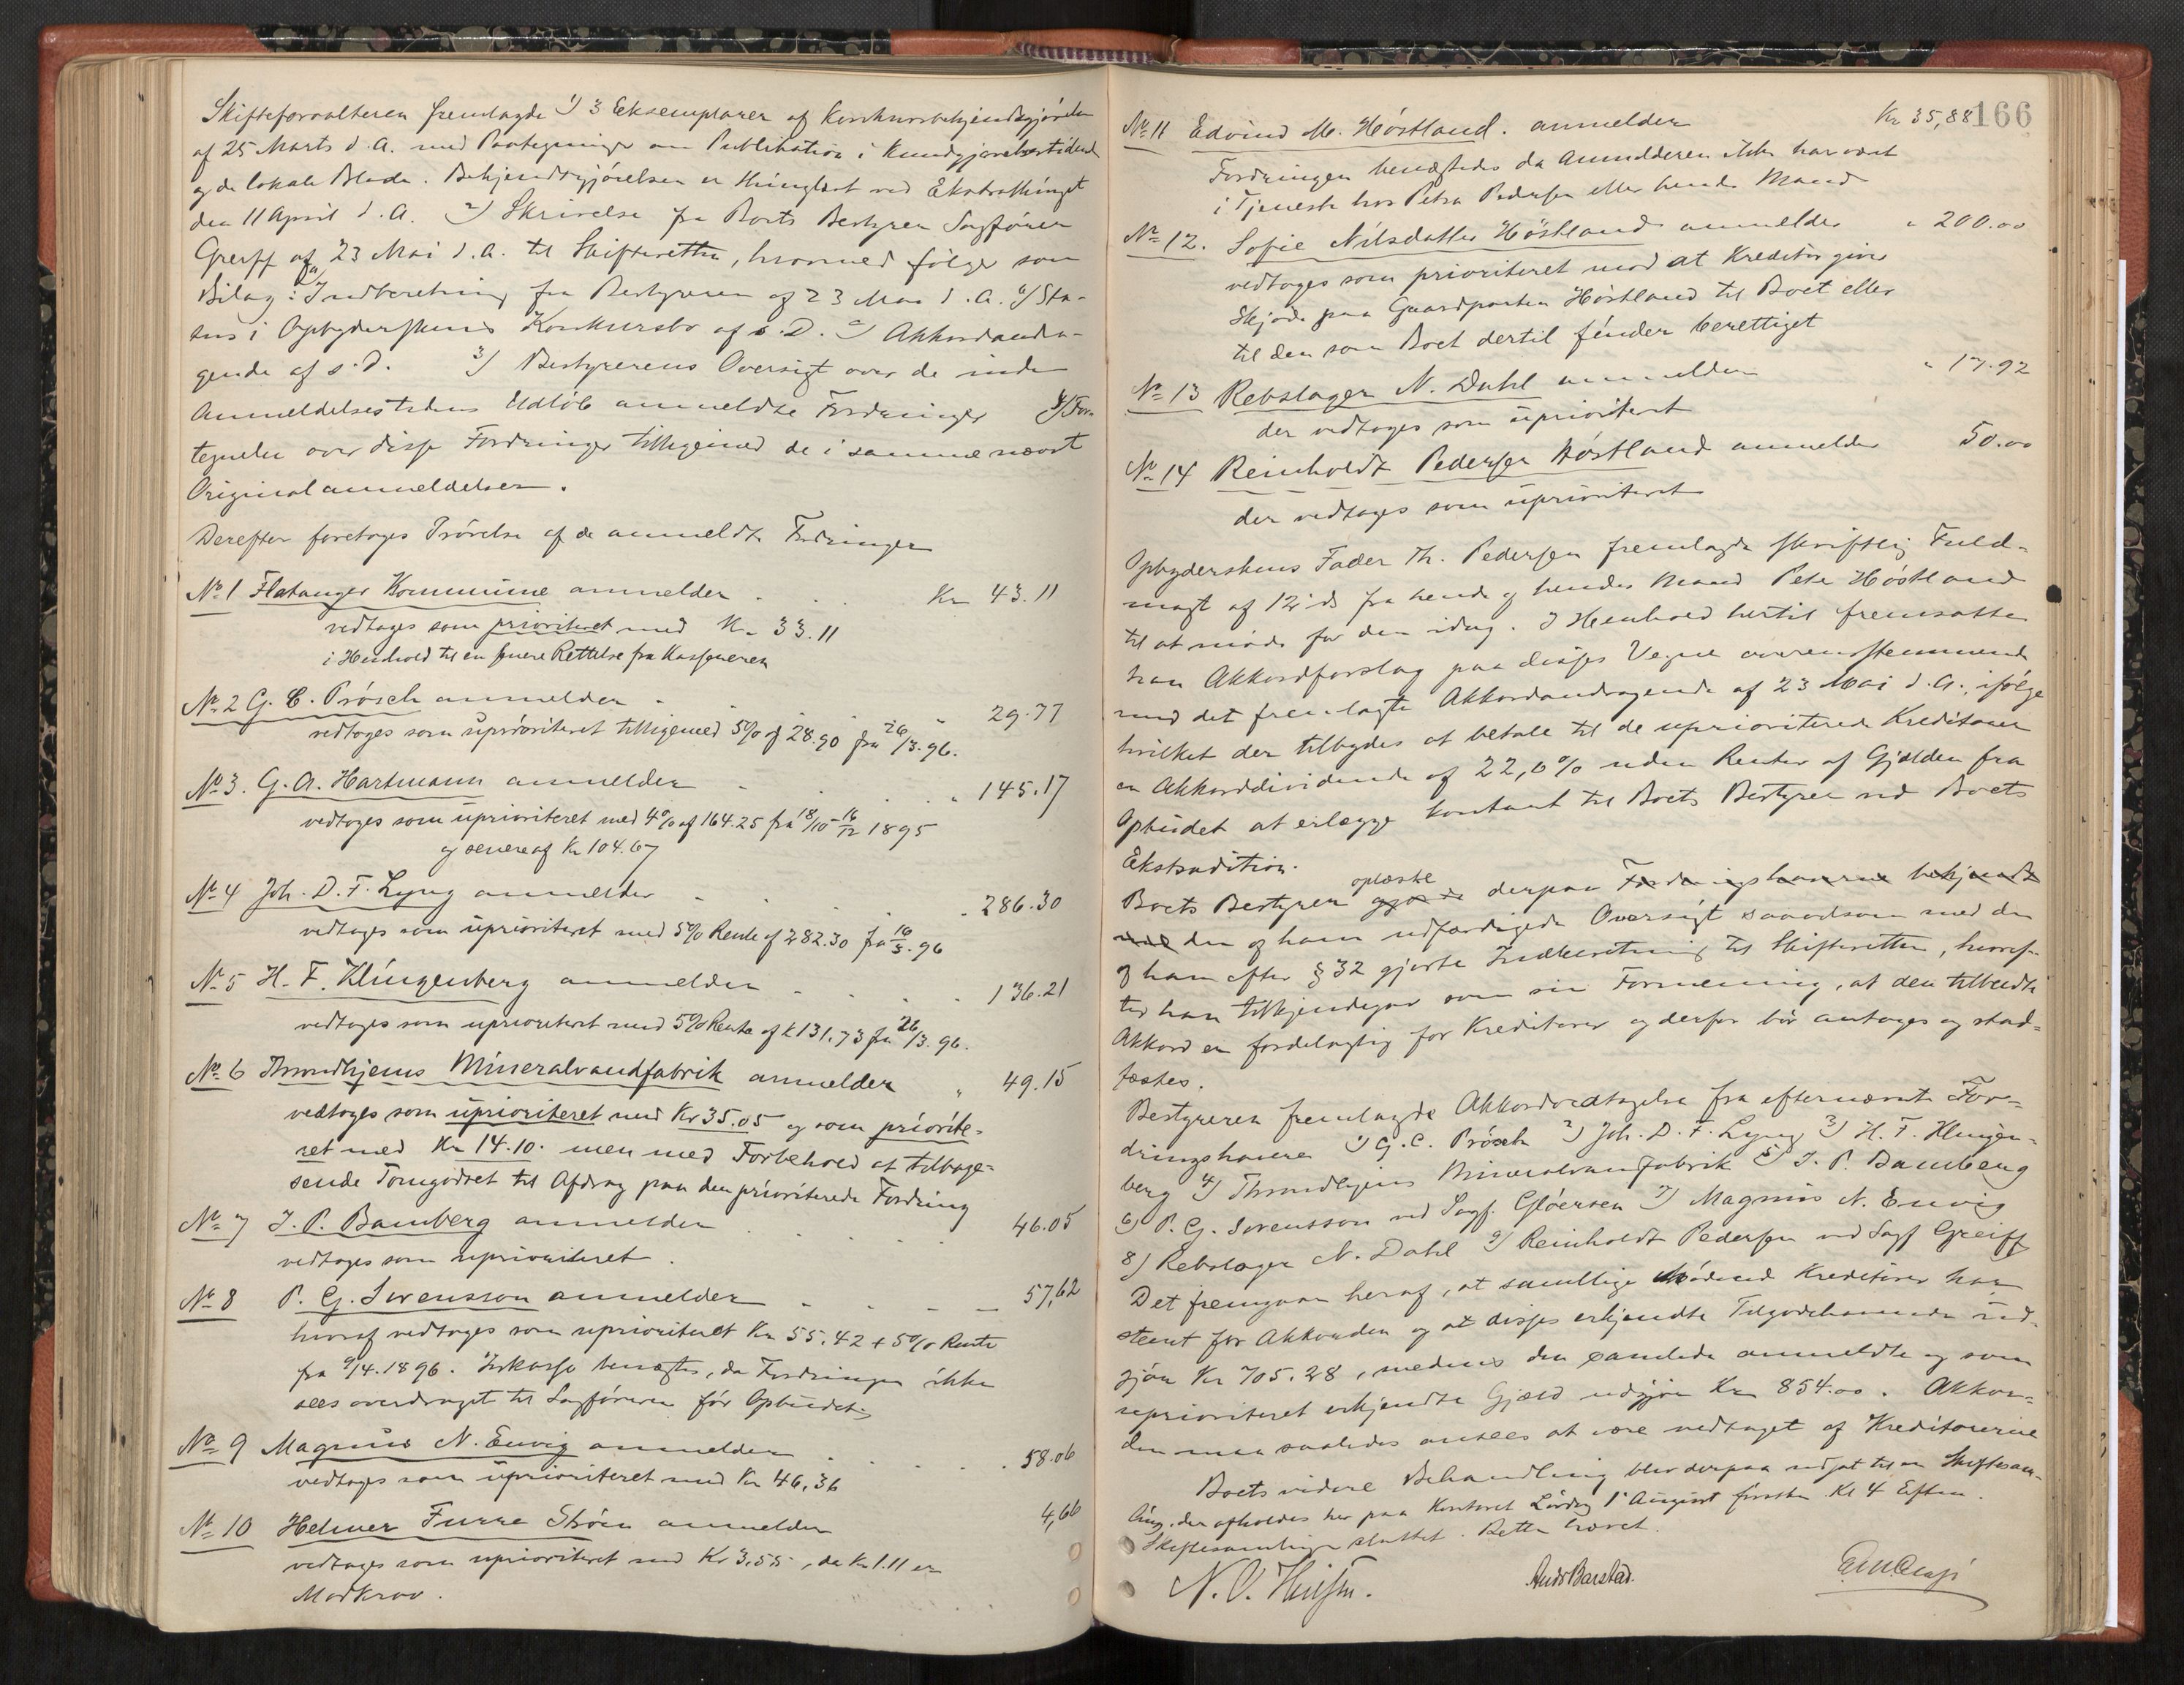 Skifteforvalteren fremlagde 1) 3 Eksemplarer af Konkursbekjendtgjørelse
af 25 Marts d. A. med Paategninger om Publikation i Kundgjørelsestidende
og de lokale Blade. Bekjendtgjørelsen er thinglæst ved Ekstrathinget
den 11 April d. A. 2) Skrivelse fra Boets Bestyrer Sagfører
Greiff af 23 Mai d. A. til Skifteretten, hvormed følger som
Bilag: a) Indberetning fra Bestyreren af 23 Mai d. A. b) Sta-
tus i Opbyderskens Konkursbo af s. D. c) Akkordandra-
gende af s. D. 3) Bestyrerens Oversigt over de inden
Anmeldelsestidens Udløb anmeldte Fordringer 4) For-
tegnelse over disse Fordringer tilligemed de i samme nævnte
Originalanmeldelser.
Derefter foretoges Prøvelse af de anmeldte Fordringer
No 1 Flatanger Kommune anmelder Kr 43.11
vedtoges som prioriteret med Kr. 33.11
i Henhold til en senere Rettelse fra Kassereren
No 2 G. C. Prösch anmelder " 29.77
vedtoges som uprioriteret tilligemed 5% af 28.90 fra 26/3.96.
No 3. G. A. Hartmann anmelder " 145.17
vedtoges som uprioriteret med 4% af 164.25 fra 18/10 - 16/12 1895
og senere af Kr 104.67
No 4 Joh. D. F. Lyng anmelder " 286.30
vedtoges som uprioriteret med 5% Rente af 282.30 fra 16/3.96
No 5 H. F. Klingenberg anmelder " 136.21
vedtoges som uprioriteret med 5% Rente af k 131.73 fra 26/3.96.
No 6 Throndhjems Mineralvandfabrik anmelder " 49.15
vedtoges som uprioriteret med Kr 35.05 og som priorite-
ret med Kr 14.10. men med Forbehold at tilbage-
sende Tomgodset til Afdrag paa den prioriterede Fordring
No 7 I. P. Bamberg anmelder 46.05
vedtoges som uprioriteret.
No 8 P. G. Svensson anmelder 57,62
hvoraf vedtoges som uprioriteret Kr 55.42 + 5% Rente
fra 9/4.1896. Inkasso benægtes, da Fordringen ikke
sees overdraget til Sagføreren før Opbudet
No 9 Magnus N. Envig anmelder 58.06
vedtoges som uprioriteret med Kr 46,36
No 10 Helmer Furre Strøm anmelder 4,66
vedtoges som uprioriteret med Kr 3.55, da Kr 1.11 er
Modkrav.
166
No 11 Edvind M. Høstland. anmelder Kr 35,88
Fordringen benægtedes da Anmelderen ikke har været
i Tjeneste hos Petra Pedersen eller hendes Mand
No 12. Sofie Nilsdatter Høstland anmelder " 200.00
vedtoges som prioriteret mod at Kreditor giver
Skjøde paa Gaardparten Høstland til Boet eller
til den som Boet dertil finder berettiget
No 13 Rebslager N. Dahl anmelder " 17.92
der vedtoges som uprioriteret
No 14 Reinholdt Pedersen Høstland anmelder 50.00
der vedtoges som uprioriteret
Opbyderskens Fader Th. Pedersen fremlagde skriftlig Fuld-
magt af 12 ds fra hende og hendes Mand Peter Høstland
til at møde for dem idag. I Henhold hertil fremsatte
han Akkordforslag paa disses Vegne overensstemmende
med det fremlagte Akkordandragende af 23 Mai d. A., ifølge
hvilket der tilbydes at betale til de uprioriterede Kreditorer
en Akkorddividende af 22,0% uden Renter af Gjælden fra
Opbudet at erlægge kontant til Boets Bestyrer ved Boets
Ekstradition.
Boets Bestyrer gjorde oplæste derpaa Fordringshaverne bekjendt
med den af ham udfærdigede Oversigt saavelsom med den
af ham efter § 32 gjorte Indberetning til Skifteretten, hvoref-
ter han tilkjendegav som sin Formening, at den tilbudte
Akkord er fordelagtig for Kreditorer og derfor bør antages og stad-
fæstes.
Bestyreren fremlagde Akkordvedtagelse fra efternævnte For-
dringshavere 1) G. C. Prösch 2) Joh. D. F. Lyng 3) H. F. Klingen-
berg 4) Throndhjems Mineralvanfabrik 5) I. P. Bamberg
6) P. G. Svensson ved Sagf. Gløersen 7) Magnus N. Envig
8) Rebslager N. Dahl 9) Reinholdt Pedersen ved Sagf Greiff
Det fremgaar heraf, at samtlige mødende Kreditorer har
stemt for Akkorden og at disses erkjendte Tilgodehavende ud-
gjør Kr 705.28, medens den samlede anmeldte og som
uprioriteret erkjendte Gjæld udgjør Kr 854.00. Akkor-
den maa saaledes ansees at være vedtaget af Kreditorerne
Boets videre Behandling blev derpaa udsat til en Skiftesam-
ling, der afholdes her paa Kontoret Lørdag 1 August førstk. Kl 4 Efterm.
Skiftesamlingen sluttet. Retten hævet.
Ands Barstad.